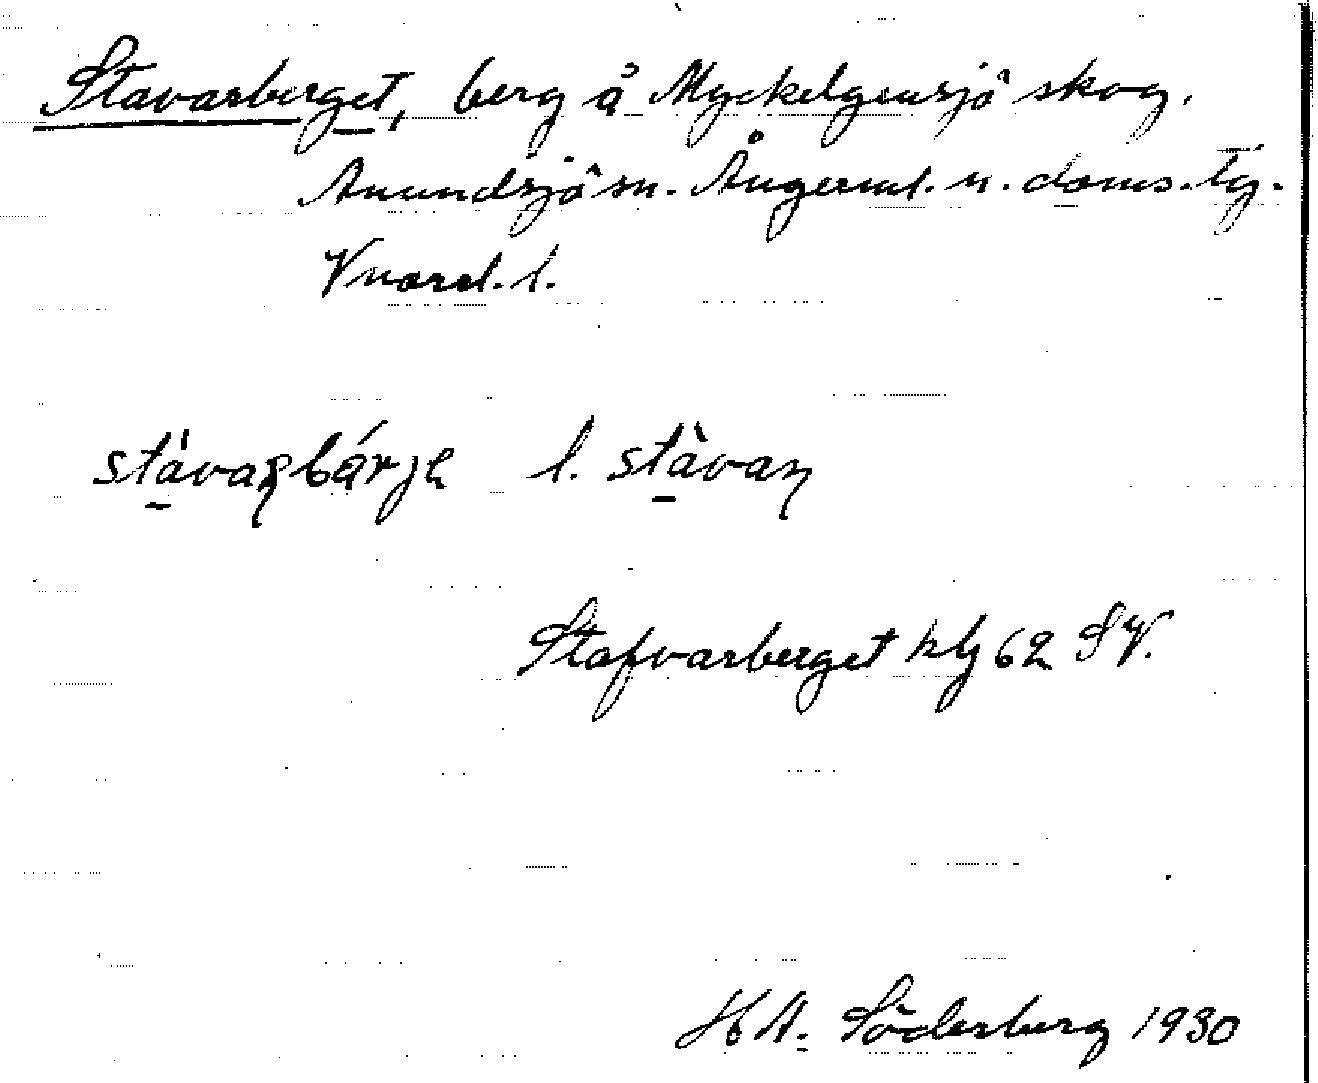 Stavarberget, berg å Myckelgensjö skog.
Anundsjö sn. Ångerml. n. doms. Tg.
Vnord. l.
stàvaʀbárje l. stàvaɳ
Stafvarberget hlg 62 SV.
H A. Söderberg 1930